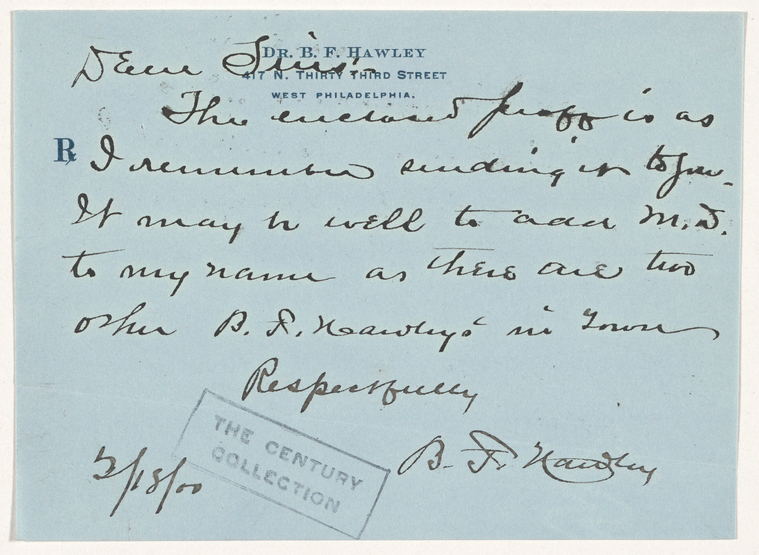 DR. B. F. HAWLEY
417 N. THIRTY THIRD STREET
WEST PHILADELPHIA.
Dear Sirs:-
The enclosed proff is as
℞ I remember sending it to you.
It may be well to add M.D.
to my name as there are two
other B. F. Hawley's in Town
Respectfully
B. F. Hawley
2/18/00
THE CENTURY
COLLECTION